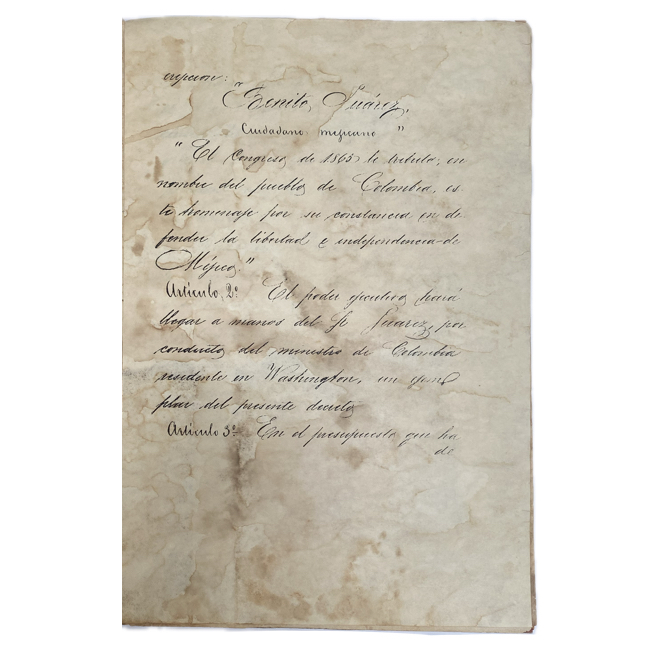 cripcion:
"Benito Juárez,
Ciudadano mejicano"
"El Congreso de 1865 le tributa, en
nombre del pueblo de Colombia, es
te homenaje por su constancia en de
fender la libertad e independencia de
Méjico."
Artículo 2º El poder ejecutivo hará
llegar a manos del Sr Juarez, por
conducto del ministro de Colombia
residente en Washington, un ejem
plar del presente decreto
Artículo 3º En el presupuesto que ha
de